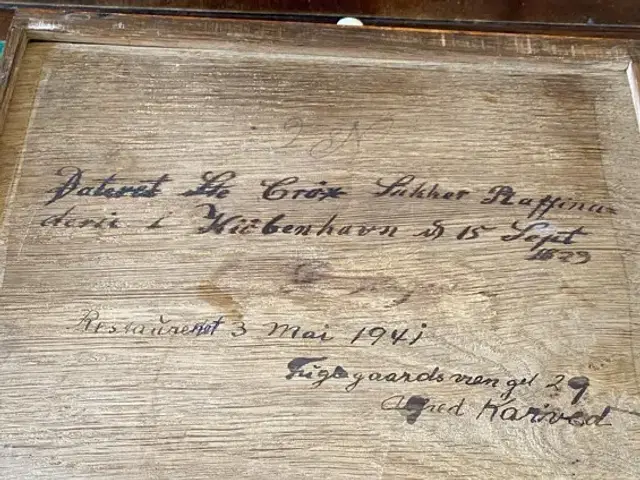 Dateret De Cröx Sukker Raffina=
derie i Kiöbenhavn d 15 Sept
1829
Restaureret 3 Mai 1941
gaardsvenget 29
Karved